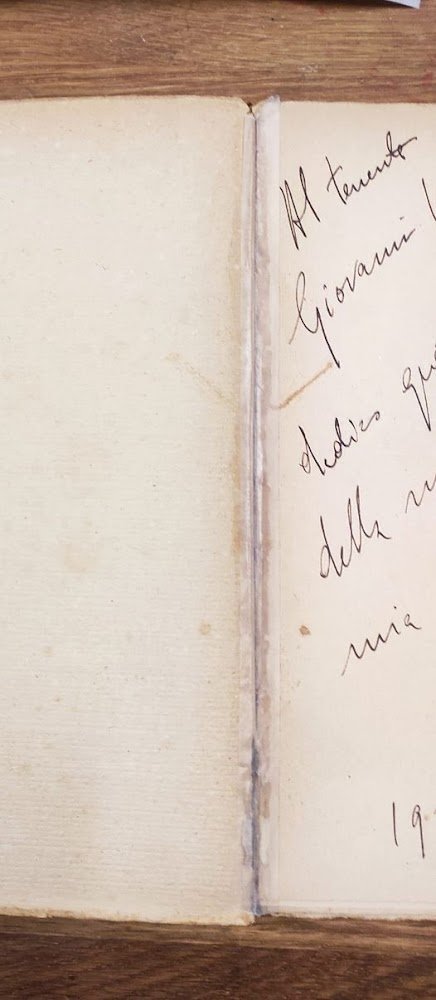 Al tenente
Giovanni
dedico
della
mia
19